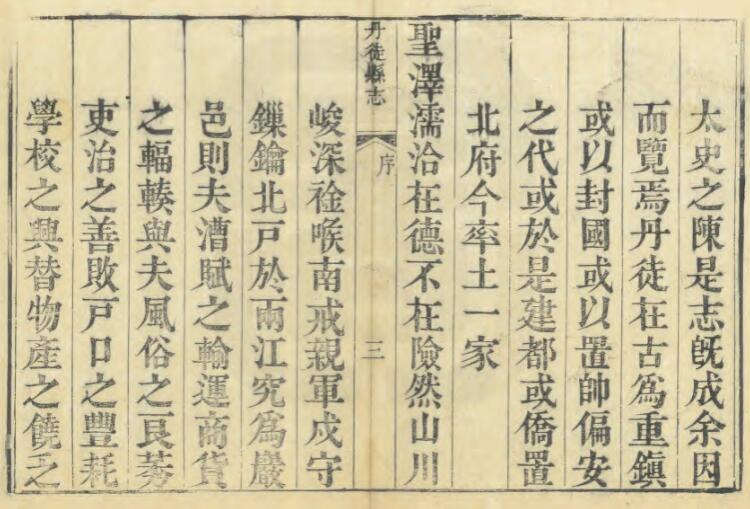 太史之陳是志旣成余因
而覽焉丹徒在古爲重鎮
或以封國或以置帥偏安
之代或於是建都或僑置
北府今率土一家
聖澤濡洽在德不在險然山川
丹徒縣志
序
三
峻深襟喉南戒親軍戍守
鏁鑰北戸於兩江究爲嚴
邑則夫漕賦之輸運商貨
之輻輳與夫風俗之良莠
吏治之善敗戸口之豐耗
學校之興替物產之饒乏